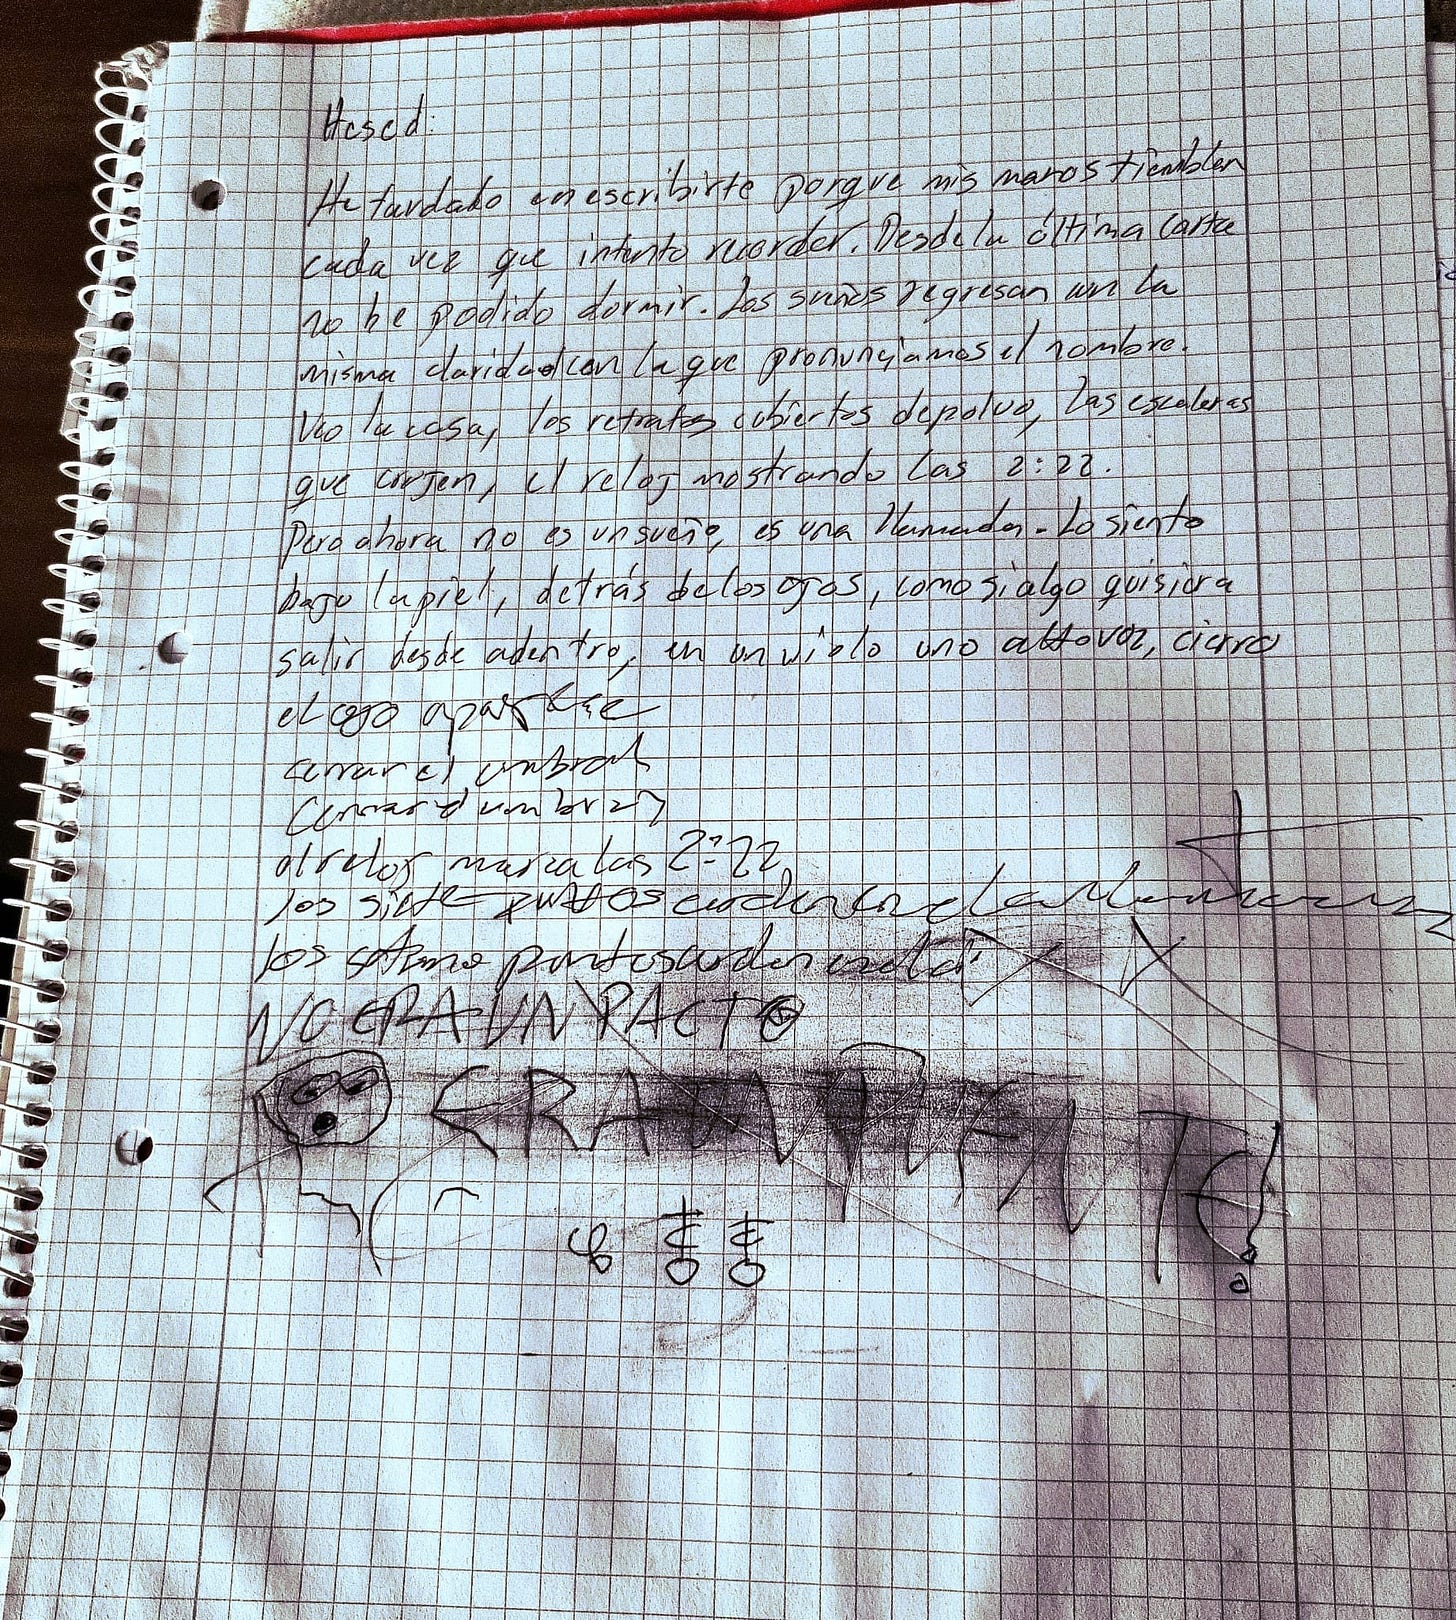 Hesed:
He tardado en escribirte porque mis manos tiemblan
cada vez que intento recordar. Desde la última carta
no he podido dormir. Los sueños regresan con la
misma claridad con la que pronunciamos el nombre.
Veo la casa, los retratos cubiertos de polvo, las escaleras
que crujen, el reloj mostrando las 2:22.
Pero ahora no es un sueño, es una llamada. Lo siento
bajo la piel, detrás de los ojos, como si algo quisiera
salir desde adentro, en un uno alto voz, cierro
el ojo
cerrar el umbral
cerrar el umbral
el reloj marca las 2:22
los siete puntos
los puntos
NO ERA UN PACTO
ERA UN PUENTE!